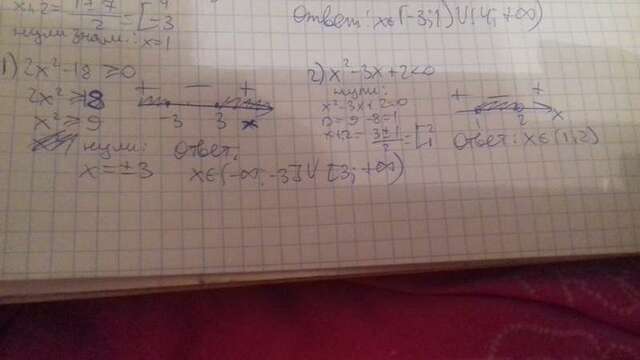 x1,2 = (1±7)/2 = [4 -3
нули знам: x=1
Ответ: x∈(-3;1)∪(4;+∞)
1) 2x²-18≥0
2x²≥18
x²≥9
нули:
x=±3
+ - +
-3 3 x
Ответ:
x∈(-∞;-3]∪[3;+∞)
2) x²-3x+2<0
нули:
x²-3x+2=0
D=9-8=1
x1,2 = (3±1)/2 = [2 1
+ - +
2 x
Ответ: x∈(1;2)